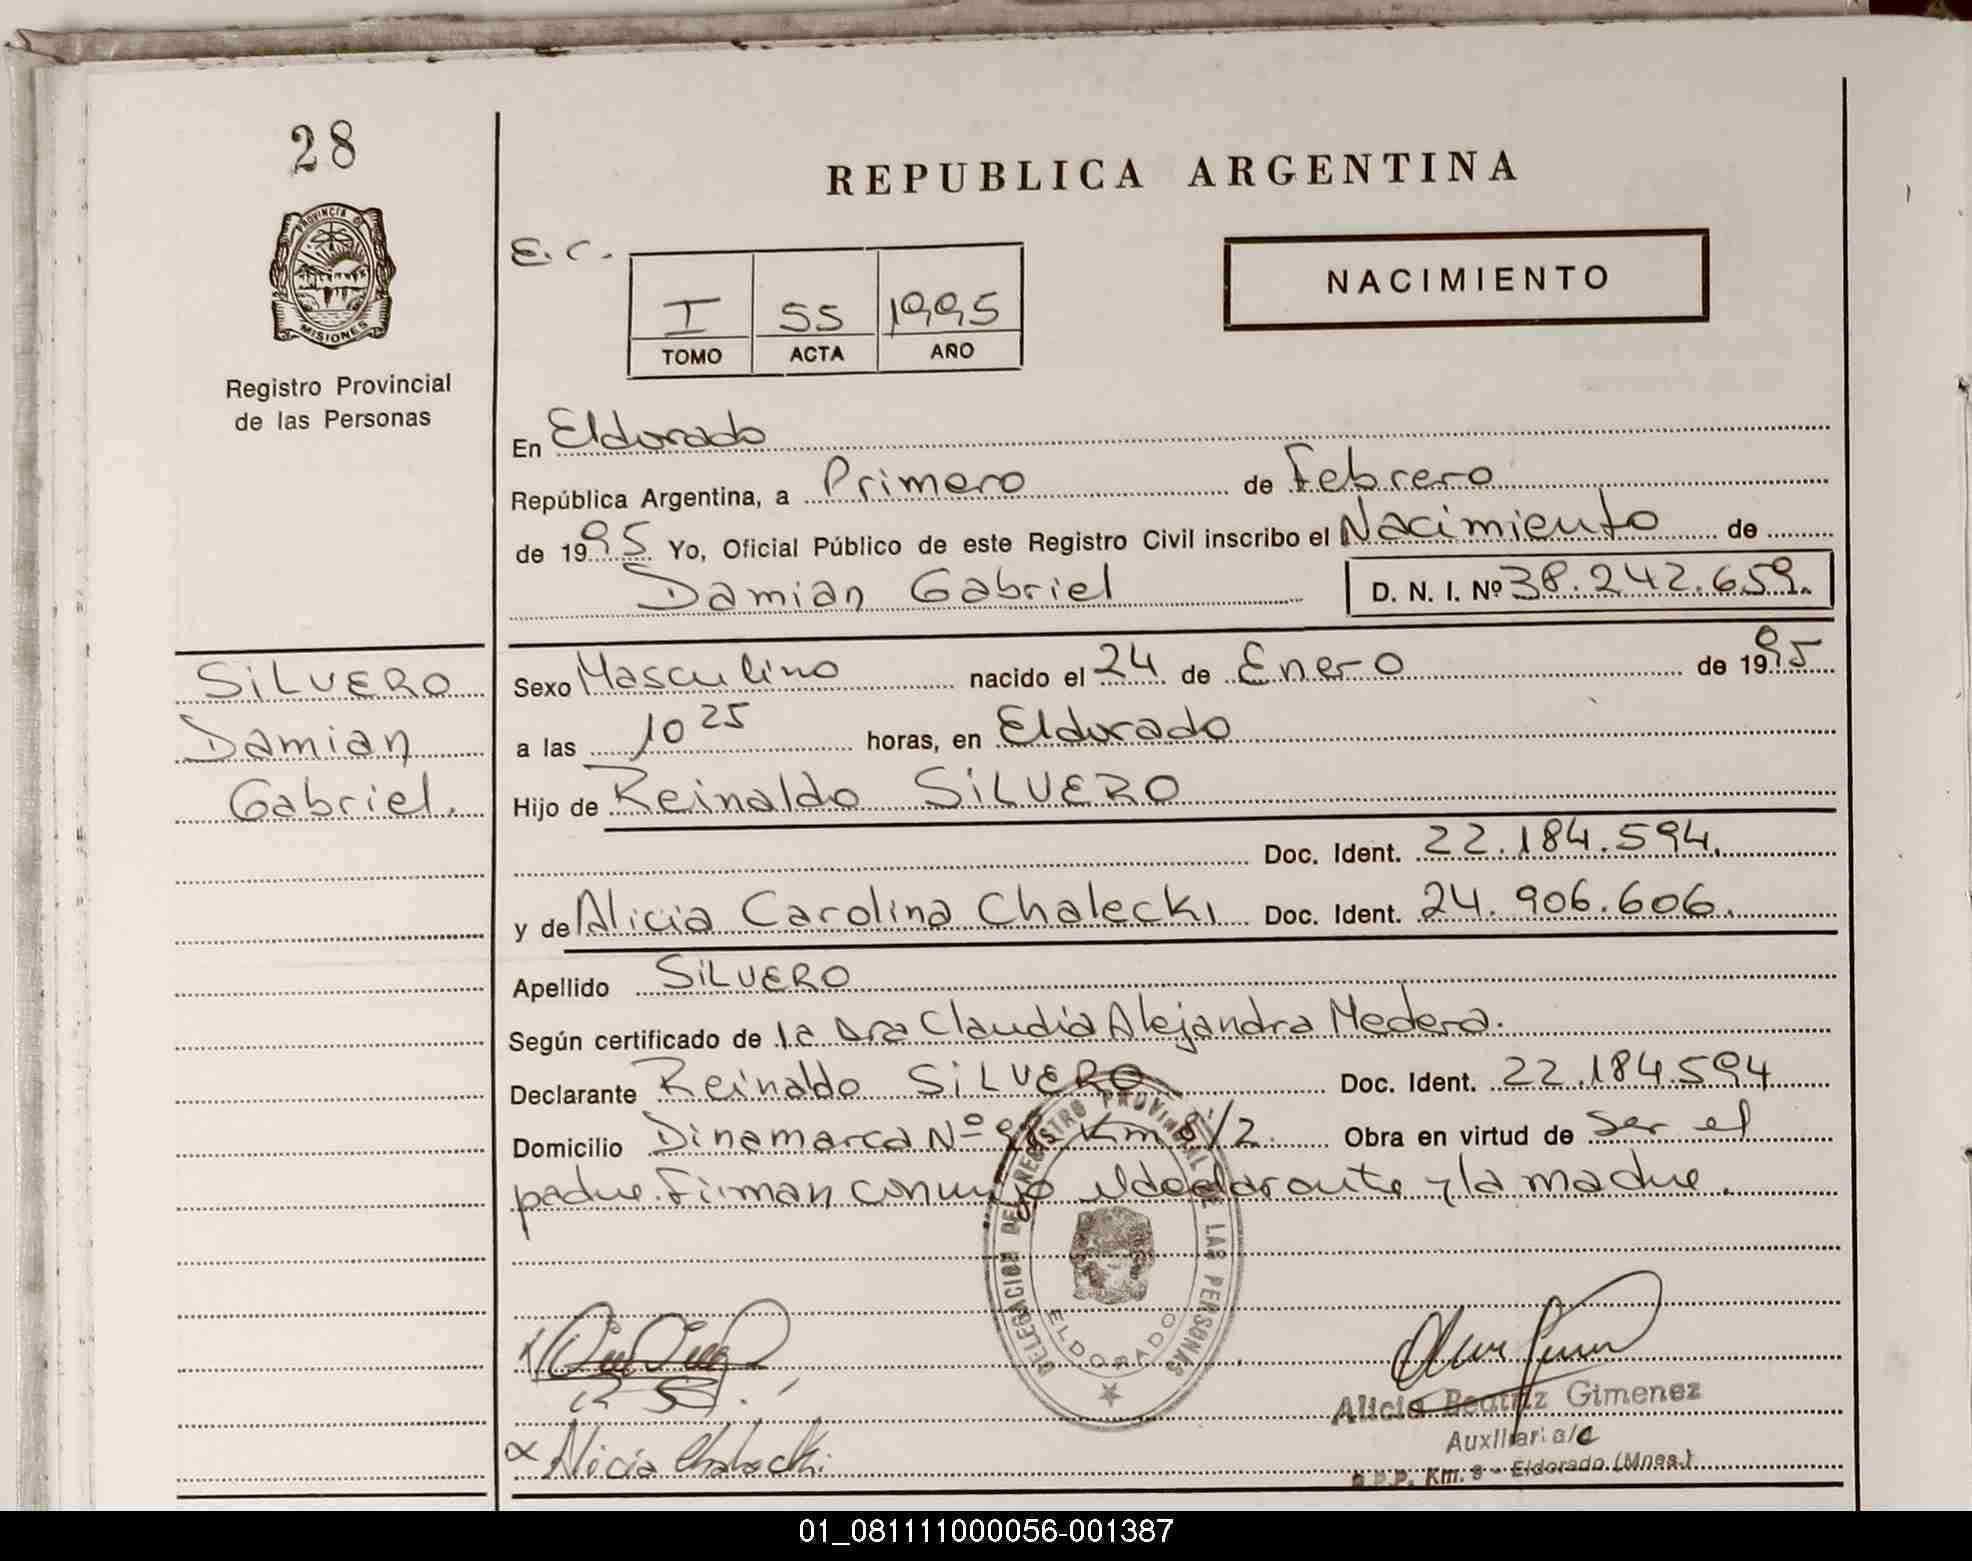 28
PROVINCIA DE
MISIONES
Registro Provincial
de las Personas
REPUBLICA ARGENTINA
E.C.
I 55 1995
TOMO ACTA AÑO
NACIMIENTO
En Eldorado
República Argentina, a Primero de Febrero
de 1995 Yo, Oficial Público de este Registro Civil inscribo el Nacimiento de
Damian Gabriel D. N. I. Nº 38.242.659.
SILVERO
Damian
Gabriel.
Sexo Masculino nacido el 24 de Enero de 1995
a las 10 25 horas, en Eldorado
Hijo de Reinaldo SILVERO
Doc. Ident. 22.184.594.
y de Alicia Carolina Chalecki Doc. Ident. 24.906.606.
Apellido SILVERO
Según certificado de la Dra Claudia Alejandra Medera.
Declarante Reinaldo SILVERO Doc. Ident. 22.184.594
Domicilio Dinamarca Nº Km 8 1/2. Obra en virtud de ser el
padre. Firman conmigo el declarante y la madre.
DELEGACION DEL REGISTRO PROVINCIAL DE LAS PERSONAS
ELDORADO
Alicia Chalecki
Alicia Beatriz Gimenez
Auxiliar a/c
R.P.P. Km. 9 - Eldorado (Mnes.)
01_081111000056-001387